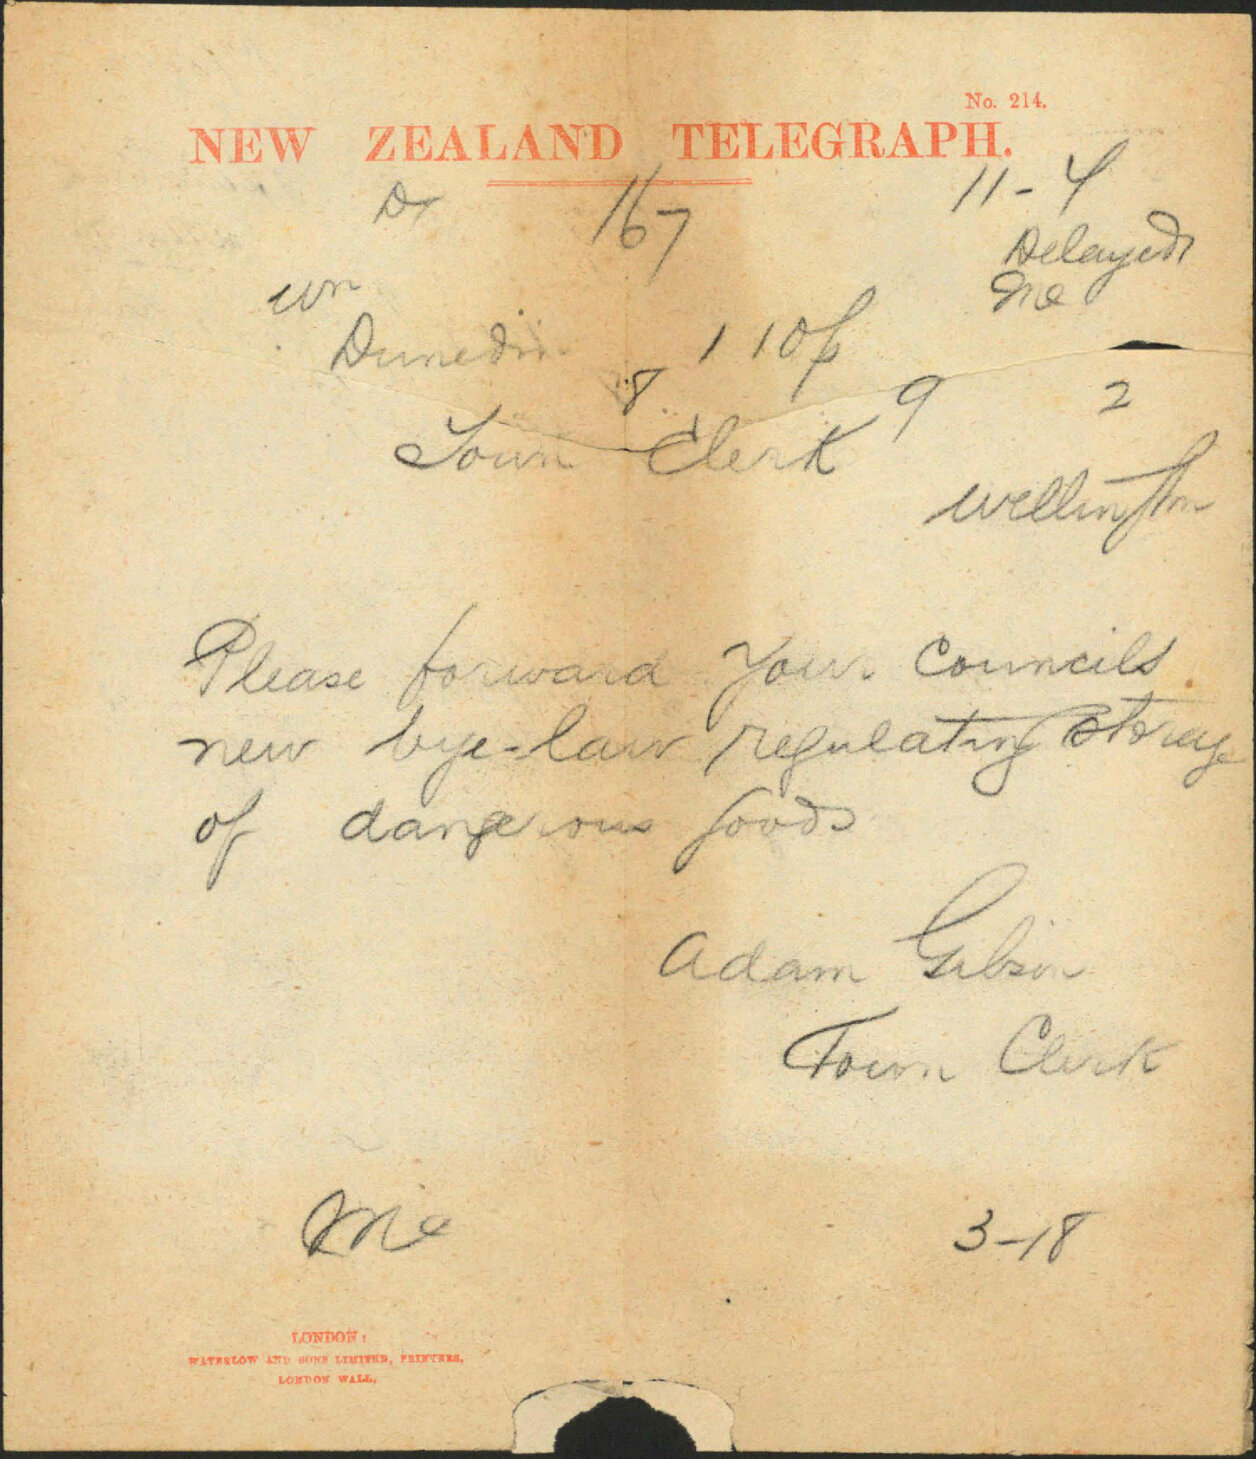 No. 214.
NEW ZEALAND TELEGRAPH.
167 11-4
Delayed
wn
Dunedin 1 10p
8 9 2
Town Clerk
Wellington
Please forward your Councils
new bye-law regulating storage
of dangerous goods
Adam Gibson
Town Clerk
3-18
LONDON:
WATERLOW AND SONS LIMITED, PRINTERS,
LONDON WALL.